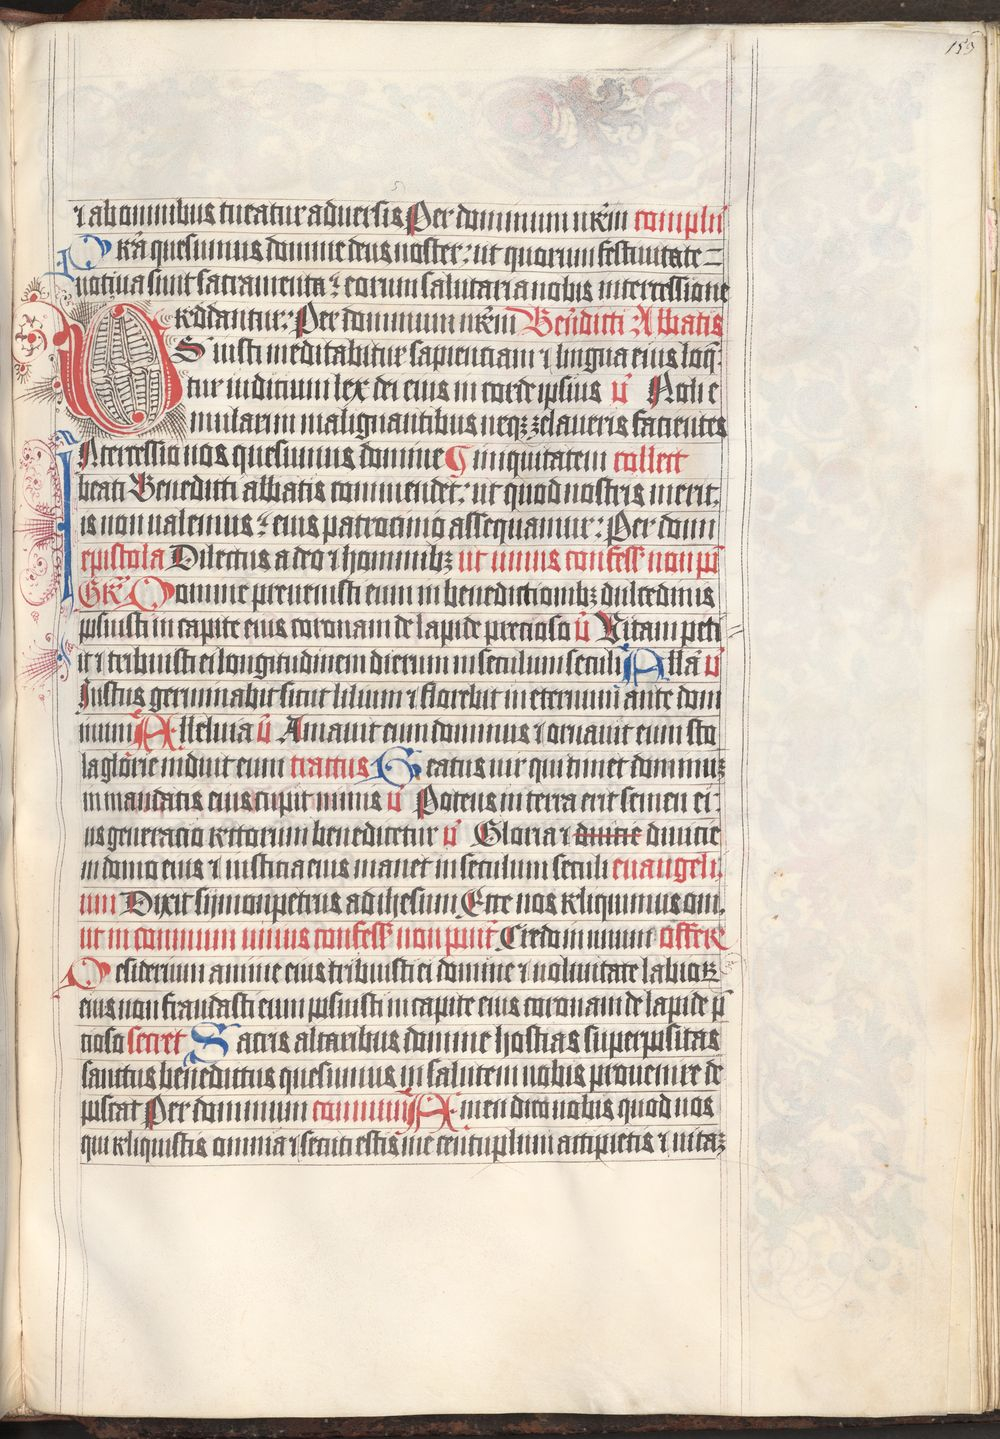 159
⁊ ab omnibus tueatur aduersis Per dominum nr̄m compln̄
Orā quesumus domine deus noster: ut quorum festiuitate
uotiua sunt sacramenta: eorum salutaria nobis intercessione
reddantur: Per dominum nr̄m Benedicti Abbatis
OS iusti meditabitur sapienciam ⁊ lingua eius loq̄
tur iudicium lex dei eius in corde ipsius v̄ Noli e
mulari in malignantibus neqꝫ zelaueris facientes
Intercessio nos quesumus domine ¶ iniquitatem collect
beati Benedicti abbatis commendet: ut quod nostris merit
is non ualemus: eius patrocinio assequamur: Per dom
epistola Dilectus a deo ⁊ hominibꝫ ut unius confess̄ non pō
Gr̄ Domine preuenisti eum in benedictionibꝫ dulcedinis
posuisti in capite eius coronam de lapide precioso v̄ Vitam peti
it ⁊ tribuisti ei longitudinem dierum in seculum seculi Allā v̄
Iustus germinabit sicut lilium ⁊ florebit in eternum ante dom
inum Alleluia v̄ Amauit eum dominus ⁊ ornauit eum sto
la glorie induit eum tractus Beatus uir qui timet dominuꝫ
in mandatis eius cupit nimis v̄ Potens in terra erit semen ei
us generacio rectorum benedicetur v̄ Gloria ⁊ diuicie diuicie
in domo eius ⁊ iusticia eius manet in seculum seculi euangeli
um Dixit symon petrus ad ihesum Ecce nos reliquimus om
ut in communi unius confess̄ non pont̄ Credo in unum offer
Desiderium anime eius tribuisti ei domine ⁊ uoluntate labioꝝ
eius non fraudasti eum posuisti in capite eius coronam de lapide p̄
cioso secret Sacris altaribus domine hostias superpositas
sanctus benedictus quesumus in salutem nobis prouenire de
poscat Per dominum communī Amen dico uobis quod uos
qui reliquistis omnia ⁊ secuti estis me centuplum accipietis ⁊ uitaꝫ